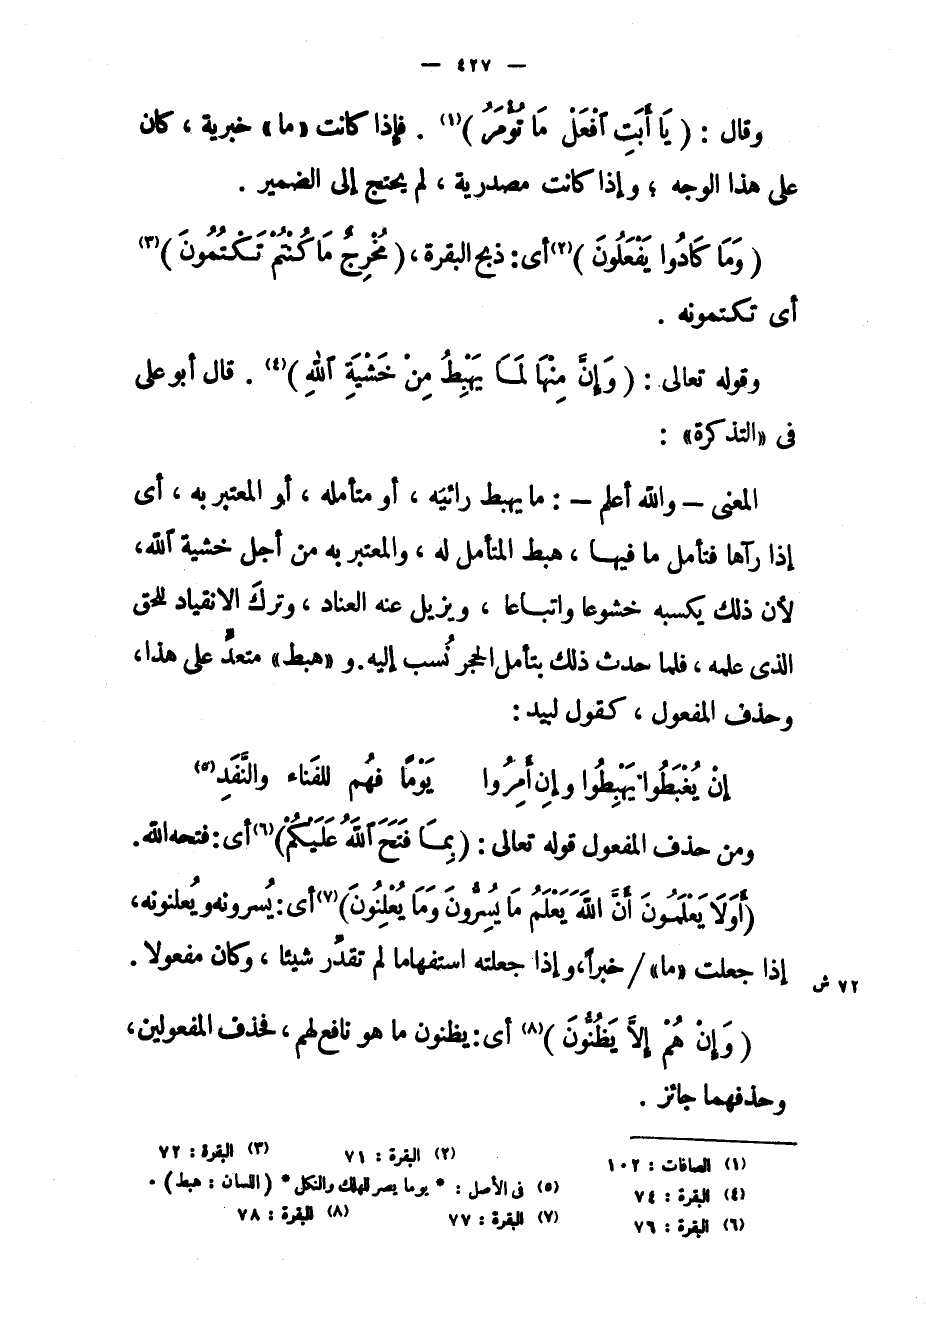 — ٤٢٧ —
وقال : ( يَا أَبَتِ ٱفْعَلْ مَا تُؤْمَرُ )(١) . فإذا كانت «ما» خبرية ، كان
على هذا الوجه ؛ وإذا كانت مصدرية ، لم يحتج إلى الضمير .
( وَمَا كَادُوا يَفْعَلُونَ )(٢) أى : ذبح البقرة ، ( مُخْرِجٌ مَا كُنْتُمْ تَكْتُمُونَ )(٣)
أى تكتمونه .
وقوله تعالى : ( وَإِنَّ مِنْهَا لَمَا يَهْبِطُ مِنْ خَشْيَةِ ٱللهِ )(٤) . قال أبو على
فى «التذكرة» :
المعنى – والله أعلم – : ما يهبط رائيَه ، أو متأمله ، أو المعتبر به ، أى
إذا رآها فتأمل ما فيها ، هبط المتأمل له ، والمعتبر به من أجل خشية ٱلله،
لأن ذلك يكسبه خشوعا واتباعا ، ويزيل عنه العناد ، وتركَ الانقياد للحق
الذى علمه ، فلما حدث ذلك بتأمل الحجر نُسب إليه. و «هبط» متعدٍّ على هذا،
وحذف المفعول ، كقول لبيد :
إنْ يُغْبَطُوا يَهْبِطُوا وإن أُمِرُوا يَوْمًا فهُم للفَناء والنَّفَدِ(٥)
ومن حذف المفعول قوله تعالى : ( بِمَا فَتَحَ ٱللَّهُ عَلَيْكُمْ)(٦) أى : فتحه الله.
(أَوَلَا يَعْلَمُونَ أَنَّ اللَّهَ يَعْلَمُ مَا يُسِرُّونَ وَمَا يُعْلِنُونَ)(٧) أى : يُسرونه ويُعلنونه،
إذا جعلت «ما» / خبراً، وإذا جعلته استفهاما لم تقدِّر شيئا ، وكان مفعولا .
٧٢ ش
( وَإِنْ هُمْ إِلاَّ يَظُنُّونَ )(٨) أى : يظنون ما هو نافع لهم ، فحذف المفعولين،
وحذفهما جائز .
(١) الصافات : ١٠٢ (٢) البقرة : ٧١ (٣) البقرة : ٧٢
(٤) البقرة : ٧٤ (٥) فى الأصل : * يوما يصر للهلك والنكل * ( اللسان : هبط ) .
(٦) البقرة : ٧٦ (٧) البقرة : ٧٧ (٨) البقرة : ٧٨